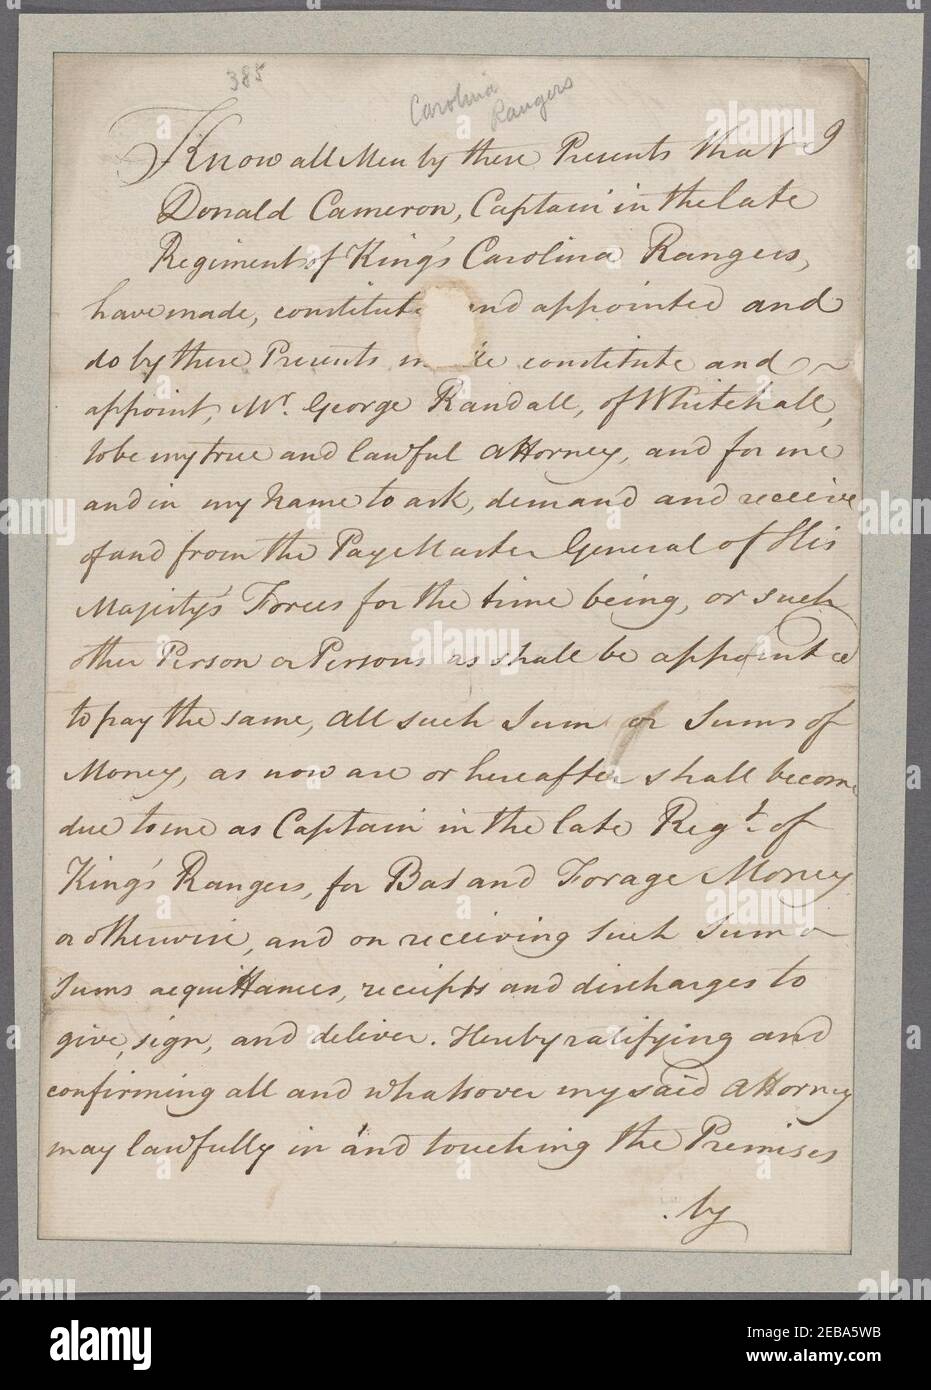 385
Carolina
Rangers
Know all Men by these Presents that I
Donald Cameron, Captain in the late
Regiment of King's Carolina Rangers,
have made, constitute and appointed and
do by these Presents make constitute and
appoint, Mr. George Randall, of Whitehall,
to be my true and lawful Attorney, and for me
and in my Name to ask, demand and receive
of and from the PayMaster General of His
Majesty's Forces for the time being, or such
other Person or Persons as shall be appointed
to pay the same, all such Sum or Sums of
Money, as now are or hereafter shall become
due to me as Captain in the late Regt. of
King's Rangers, for Bat and Forage Money
or otherwise, and on receiving such Sum or
Sums acquittances, receipts and discharges to
give, sign, and deliver. Hereby ratifying and
confirming all and whatsover my said Attorney
may lawfully in and touching the Premises
by
alamy
Image ID: 2EBA5WB
www.alamy.com